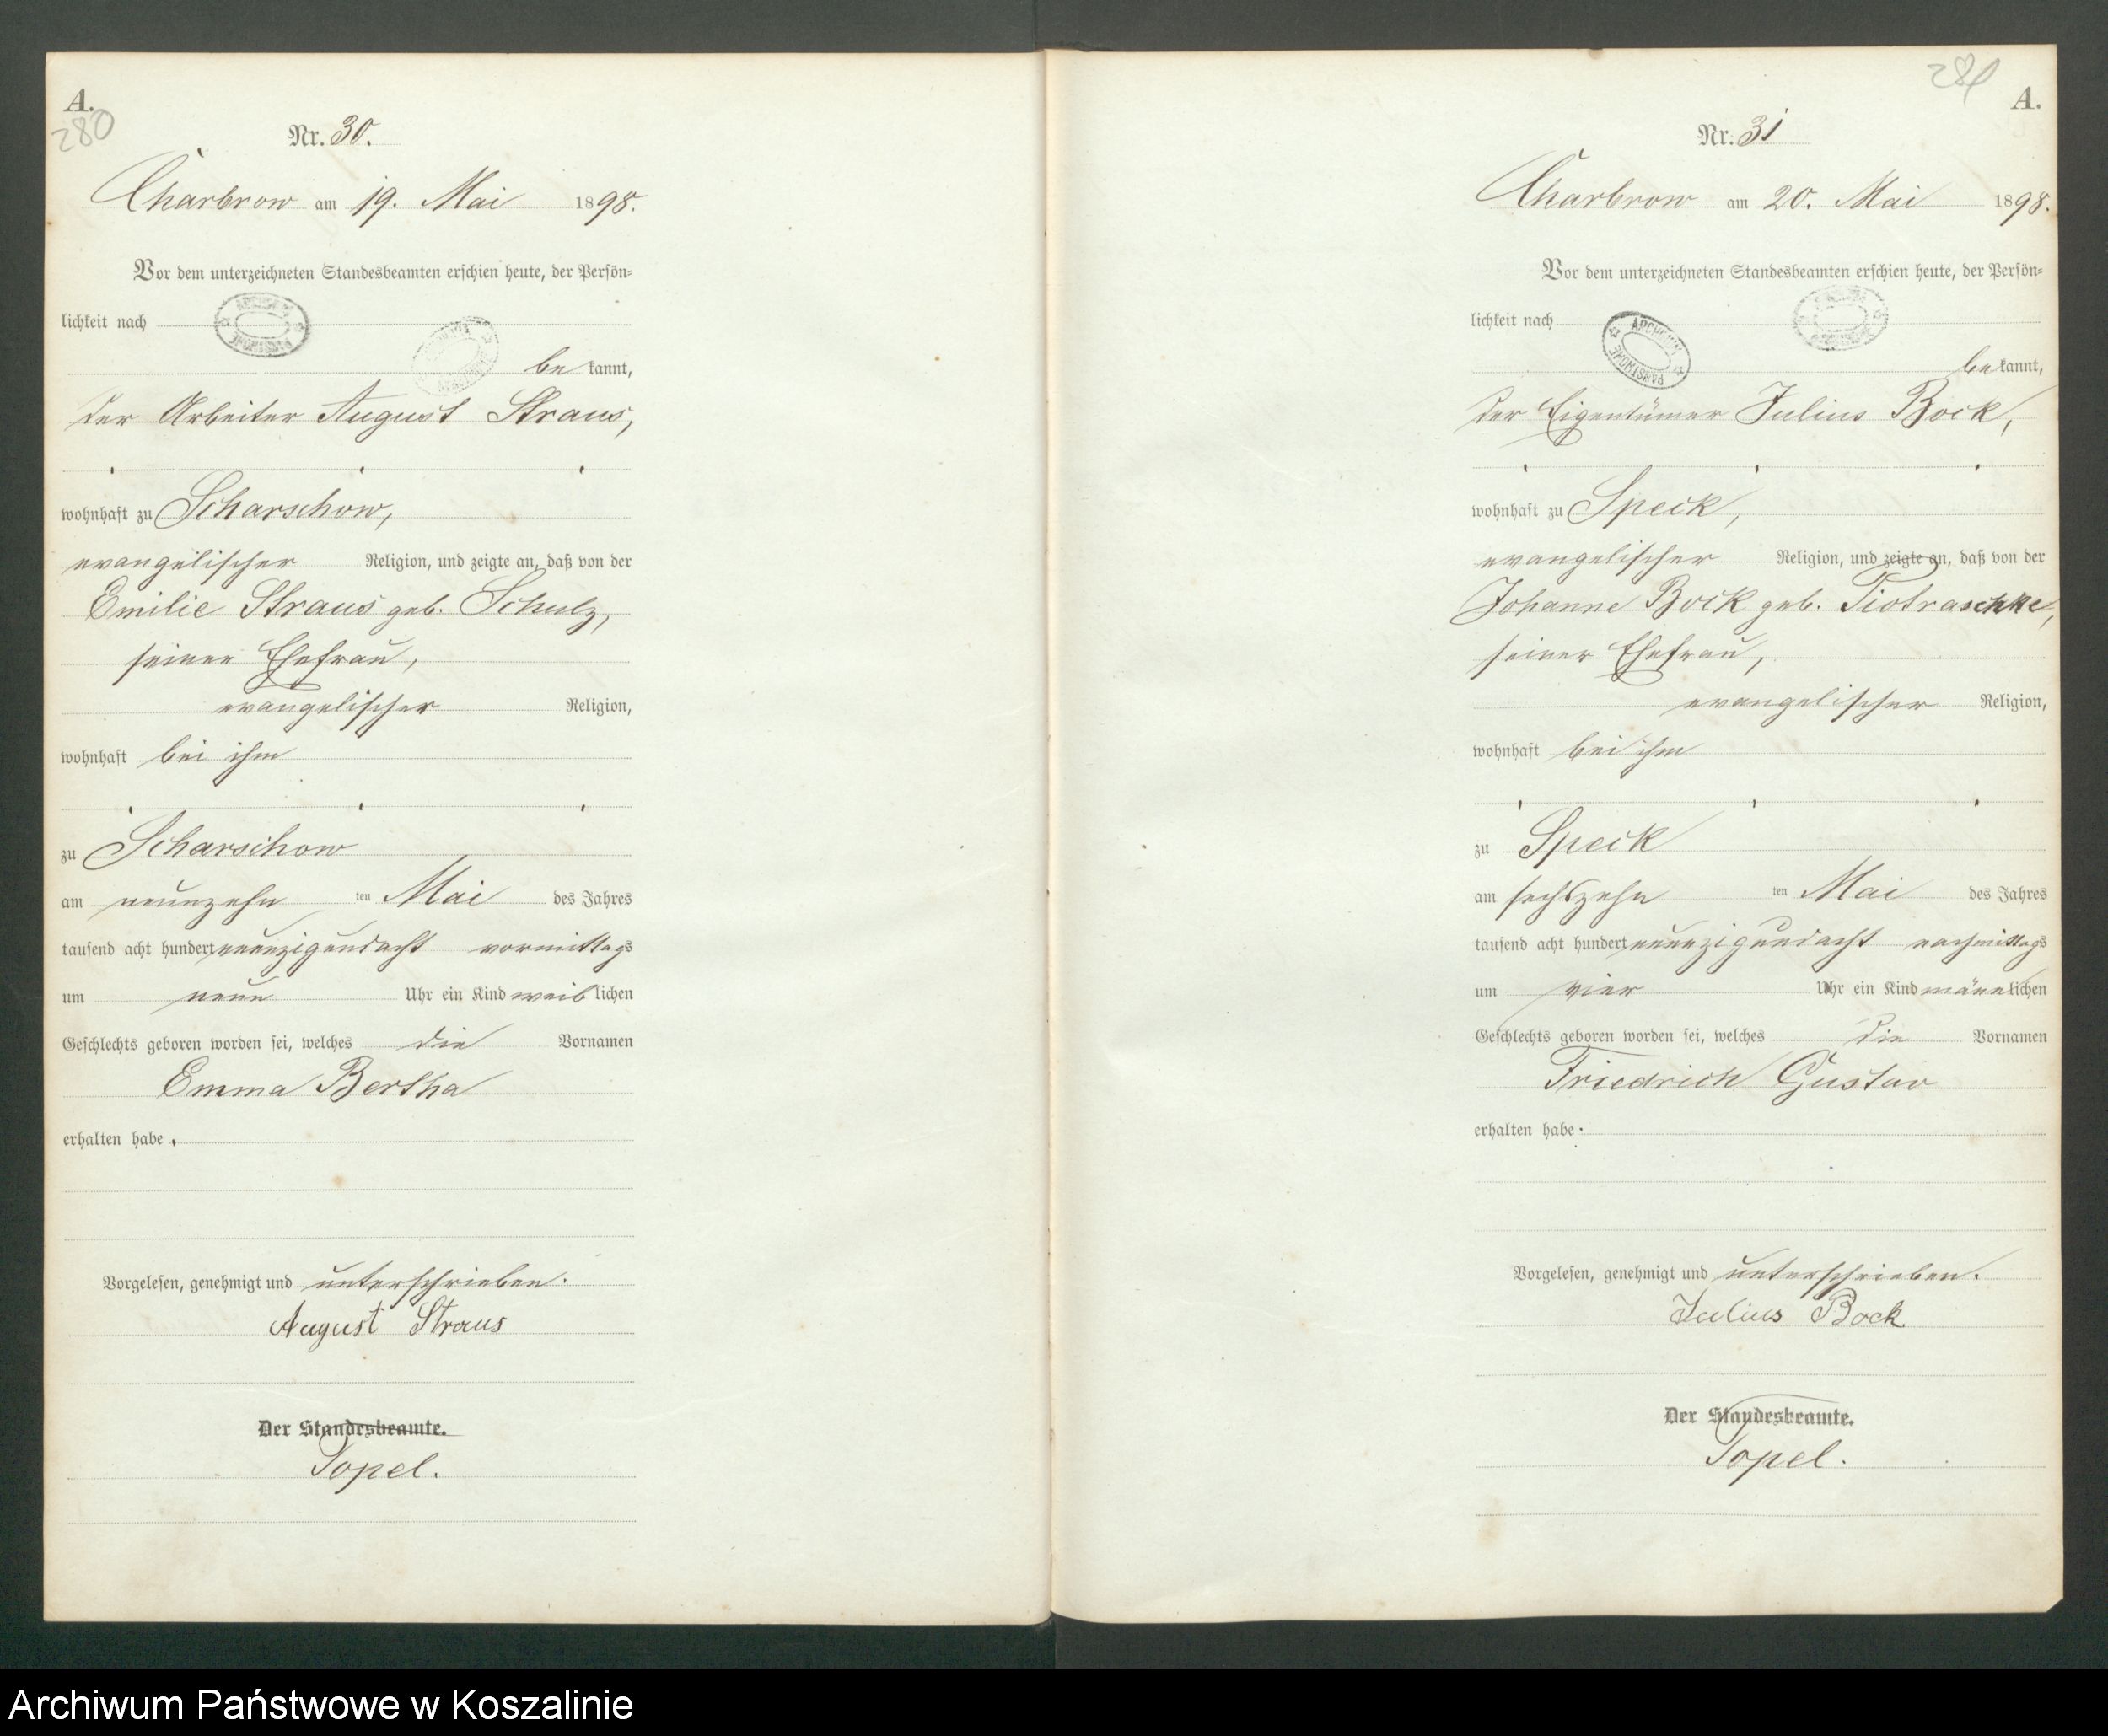 A.
280
Nr. 30.
Charbrow am 19. Mai 1898.
Vor dem unterzeichneten Standesbeamten erschien heute, der Persön-
lichkeit nach
be kannt,
der Arbeiter August Straus,
wohnhaft zu Scharschow,
evangelischer Religion, und zeigte an, daß von der
Emilie Straus geb. Schulz,
seiner Ehefrau,
evangelischer Religion,
wohnhaft bei ihm
zu Scharschow
am neunzehn ten Mai des Jahres
tausend acht hundert neunzigundacht vormittags
um neun Uhr ein Kind weib lichen
Geschlechts geboren worden sei, welches die Vornamen
Emma Bertha
erhalten habe.
Vorgelesen, genehmigt und unterschrieben.
August Straus
Der Standesbeamte.
Topel.
281
A.
Nr. 31
Charbrow am 20. Mai 1898.
Vor dem unterzeichneten Standesbeamten erschien heute, der Persön-
lichkeit nach
ARCHIWUM PAŃSTWOWE
be kannt,
der Eigentümer Julius Bock,
wohnhaft zu Speck,
evangelischer Religion, und zeigte an, daß von der
Johanne Bock geb. Tiotraschke,
seiner Ehefrau,
evangelischer Religion,
wohnhaft bei ihm
zu Speck
am sechszehn ten Mai des Jahres
tausend acht hundert neunzigundacht nachmittags
um vier Uhr ein Kind männlichen
Geschlechts geboren worden sei, welches die Vornamen
Friedrich Gustav
erhalten habe.
Vorgelesen, genehmigt und unterschrieben.
Julius Bock
Der Standesbeamte.
Topel.
Archiwum Państwowe w Koszalinie